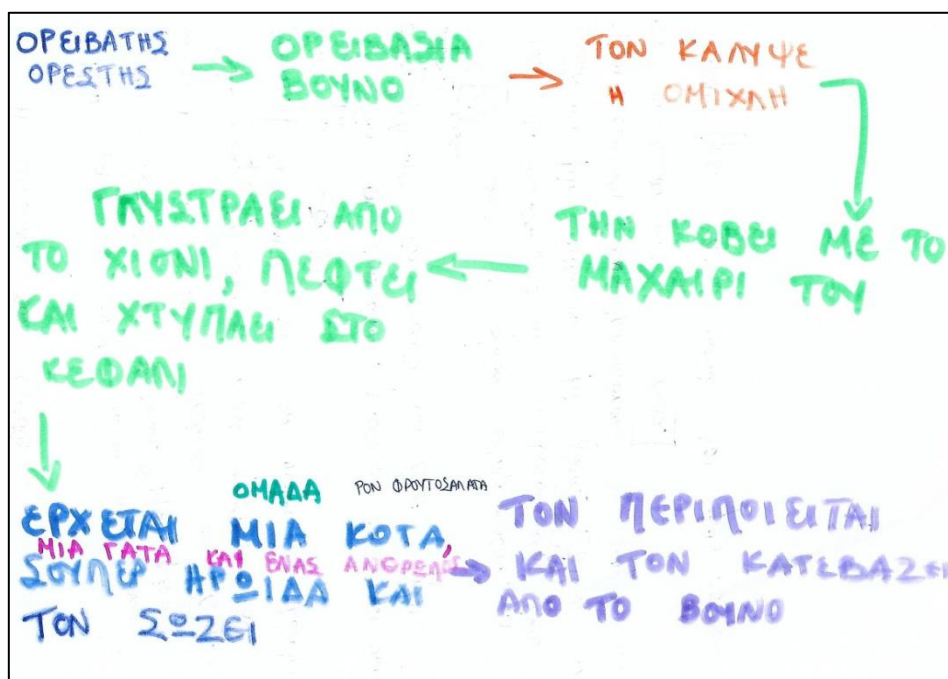 ΟΡΕΙΒΑΤΗΣ
ΟΡΕΣΤΗΣ
ΟΡΕΙΒΑΣΙΑ
ΒΟΥΝΟ
ΤΟΝ ΚΑΛΥΨΕ
Η ΟΜΙΧΛΗ
ΤΗΝ ΚΟΒΕΙ ΜΕ ΤΟ
ΜΑΧΑΙΡΙ ΤΟΥ
ΓΛΥΣΤΡΑΕΙ ΑΠΟ
ΤΟ ΧΙΟΝΙ, ΠΕΦΤΕΙ
ΚΑΙ ΧΤΥΠΑΕΙ ΣΤΟ
ΚΕΦΑΛΙ
ΟΜΑΔΑ ΡΟΝ ΦΡΟΥΤΟΣΑΛΑΤΑ
ΕΡΧΕΤΑΙ ΜΙΑ ΚΟΤΑ,
ΜΙΑ ΓΑΤΑ ΚΑΙ ΕΝΑΣ
ΣΟΥΠΕΡ ΗΡΩΙΔΑ ΚΑΙ
ΤΟΝ ΣΩΖΕΙ
ΤΟΝ ΠΕΡΙΠΟΙΕΙΤΑΙ
ΚΑΙ ΤΟΝ ΚΑΤΕΒΑΖΕΙ
ΑΠΟ ΤΟ ΒΟΥΝΟ